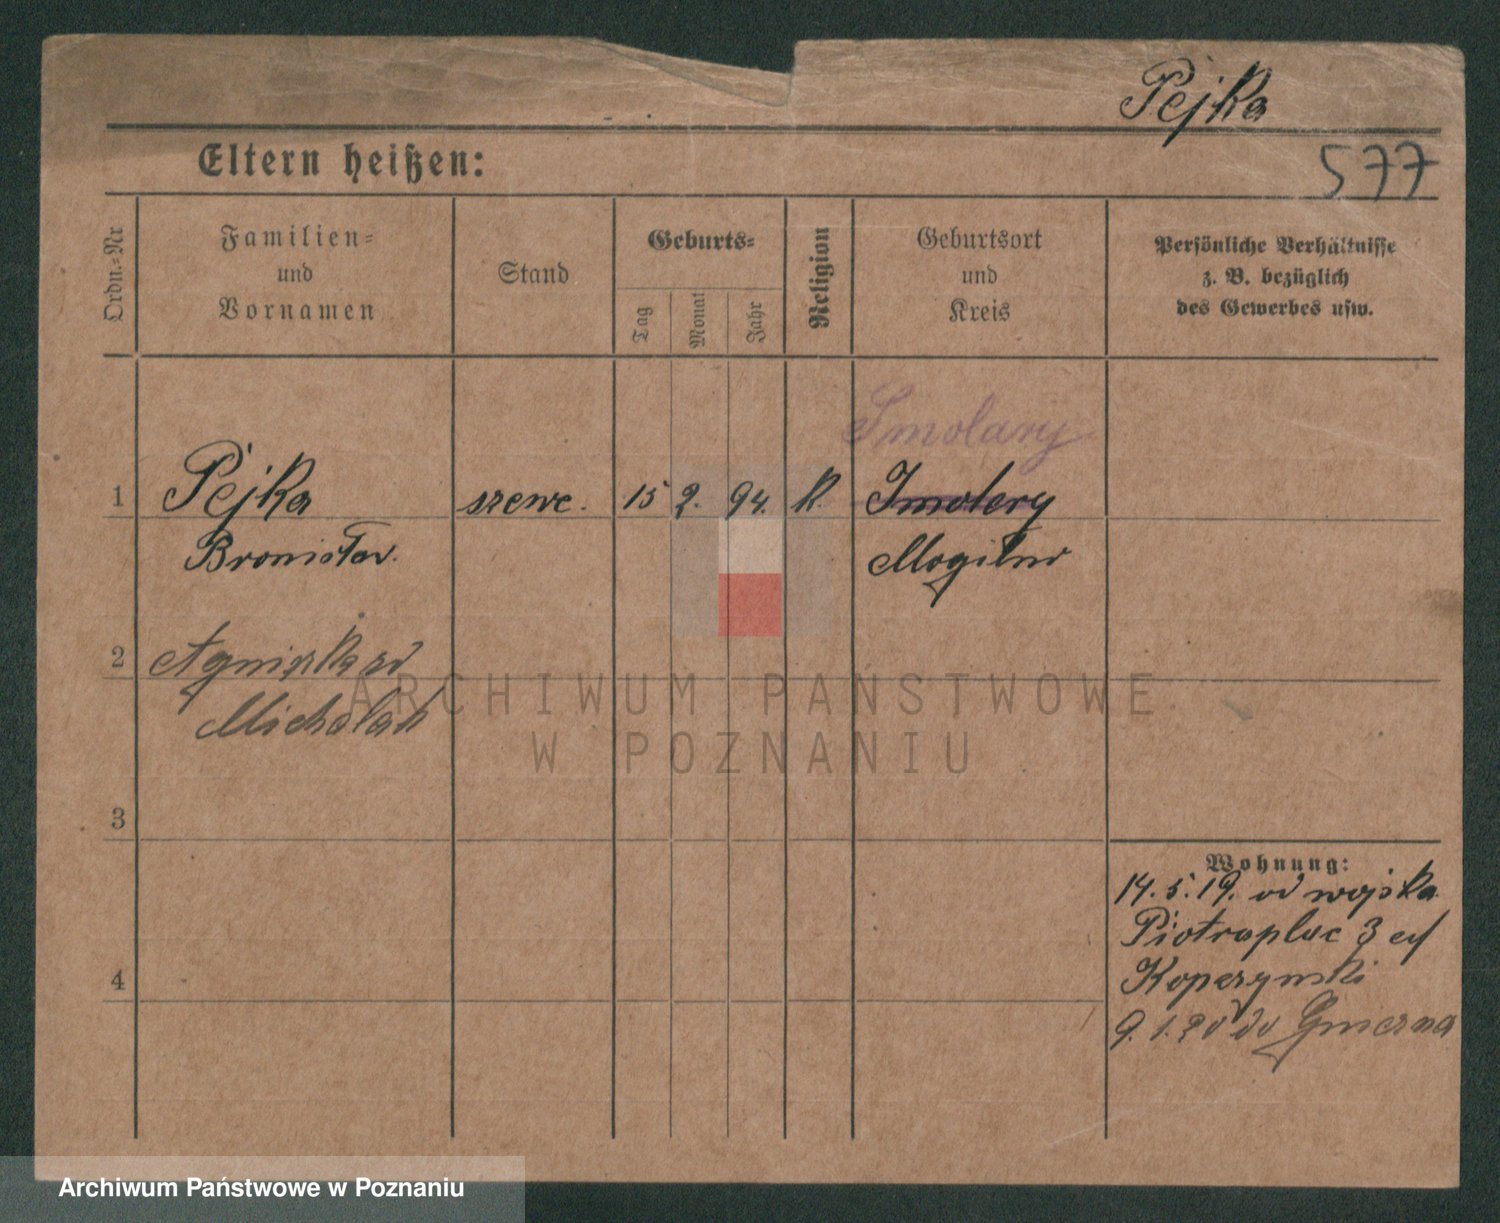 Pejka
577
Eltern heißen:
Ordn.-Nr
Familien-
und
Vornamen
Stand
Geburts-
Tag
Monat
Jahr
Religion
Geburtsort
und
Kreis
Persönliche Verhältnisse
z. B. bezüglich
des Gewerbes usw.
Smolary
1 Pejka szewc. 15 2. 94. K. Smolery
Bronisław. Mogilno
2 Agnieszka
Michalak
3
4
Wohnung:
14.5.19. od wojska
Piotraplac 3
Kopczynski
9.1.20 do Gniezna
ARCHIWUM PAŃSTWOWE
W POZNANIU
Archiwum Państwowe w Poznaniu